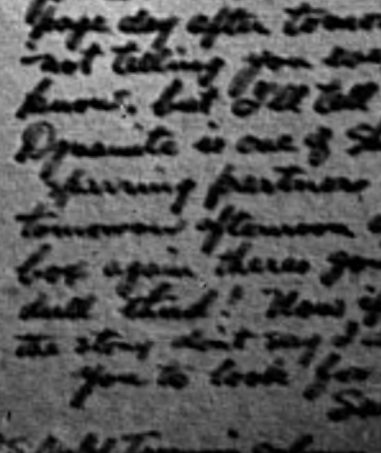 page day after tomor
not telling you
know. but I'll tell
Dynamite is one of S
sparring partners
tomorrow afternoon
box again theres go
dull thud! Now if
the story don't say I
you to look for